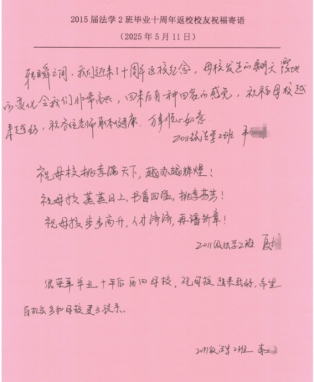 2015届法学2班毕业十周年返校校友祝福寄语
(2025年5月11日)
转瞬之间,我们迎来了十周年返校纪念,母校发生的翻天覆地
的变化令我们非常高兴,回来后有一种回家的感觉,祝福母校越
来越好,祝各位老师身体健康,万事顺心如意
2011级法学2班
祝母校桃李满天下,越办越辉煌!
祝母校蒸蒸日上,书香四溢,桃李芬芳!
祝母校步步高升,人才济济,再谱新章!
2011级法学2班 夏
很荣幸毕业十年后历回母校,祝母校越来越好,希望
有机会多和母校更多联系
2011级法学2班